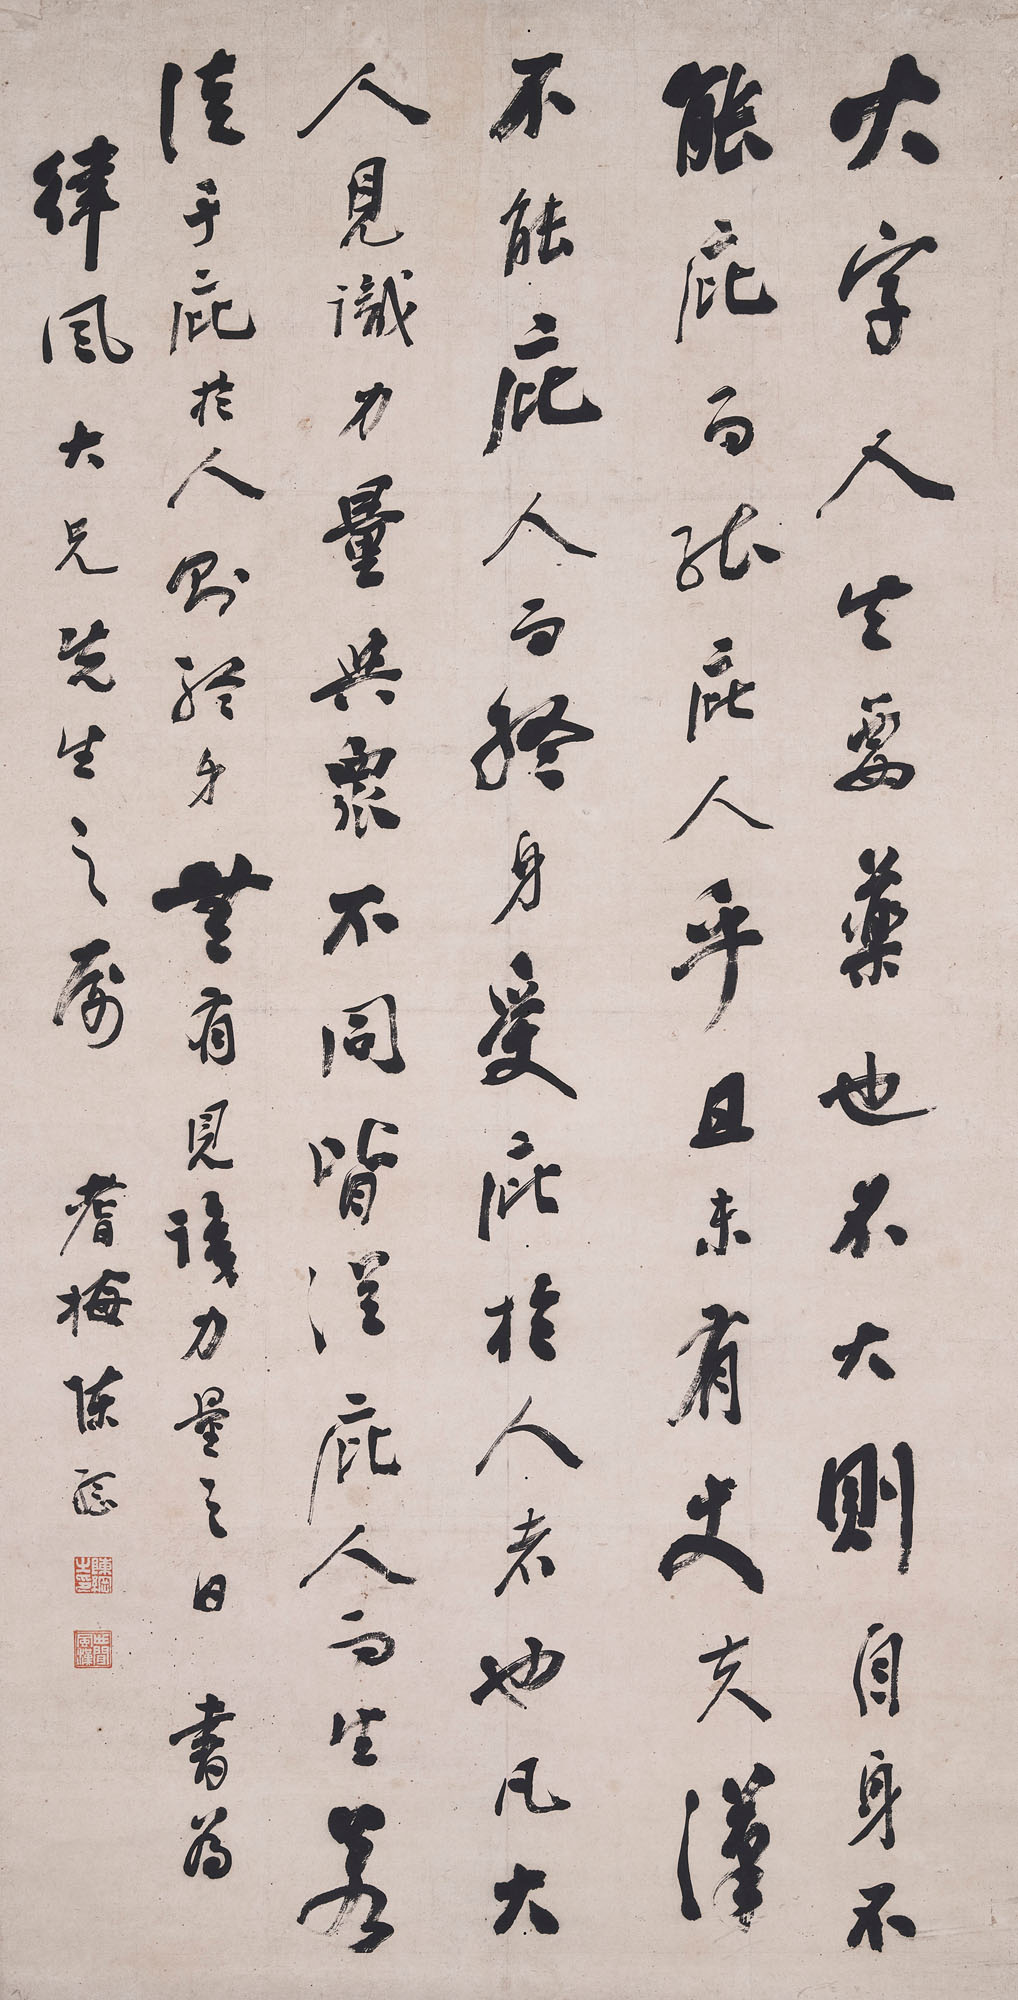 大字人生要藥也不大則自身不
能庇而能庇人乎且未有丈夫漢
不能庇人而終身受庇於人者也凡大
人見識力量與眾不同皆從庇人而生若
徒乎庇於人則終身無有見識力量之日 書為
律風大兄先生之屬 耆梅陳